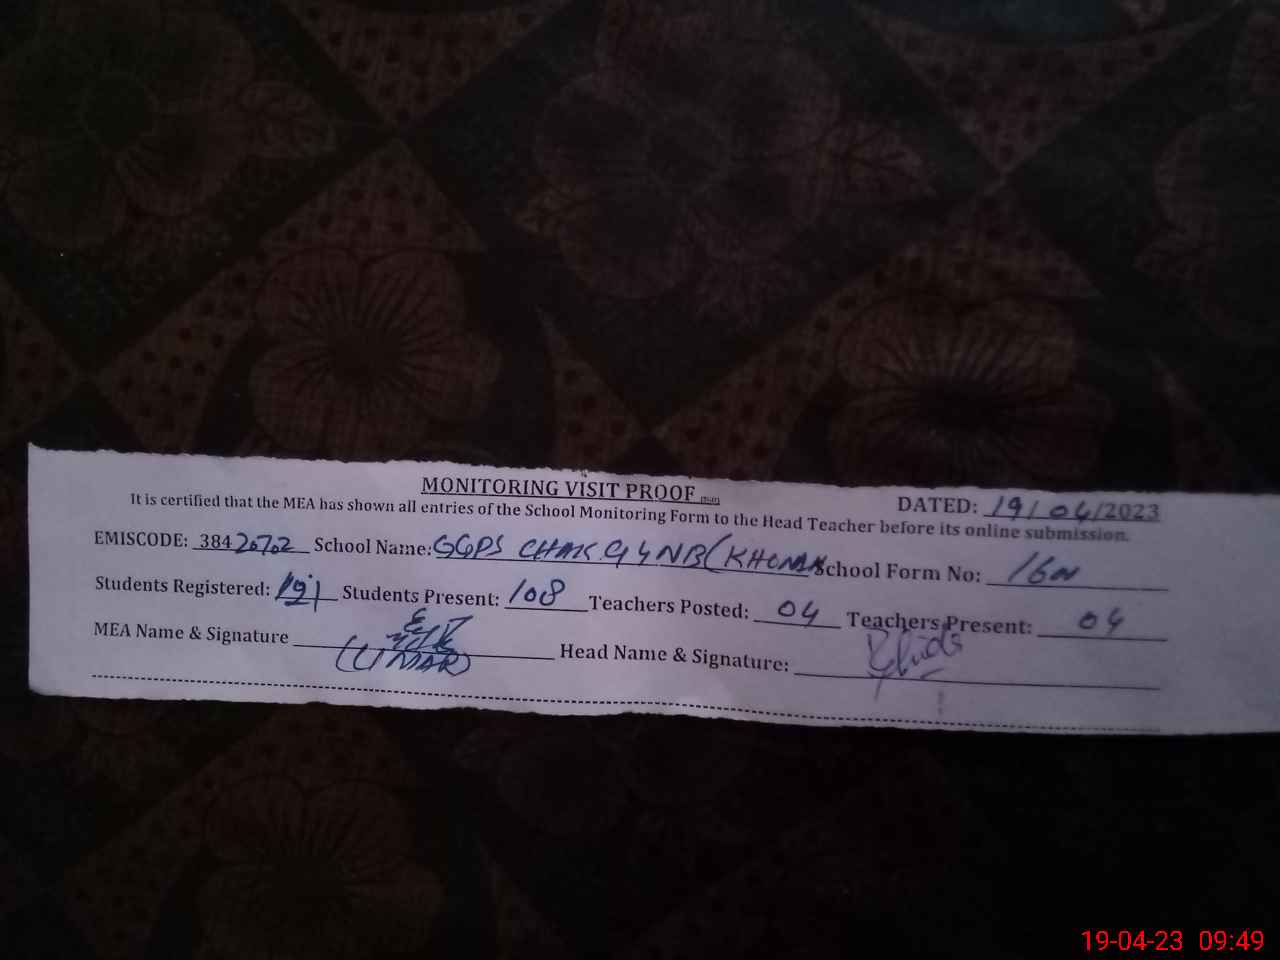 MONITORING VISIT PROOF
DATED: 19/04/2023
It is certified that the MEA has shown all entries of the School Monitoring Form to the Head Teacher before its online submission.
EMISCODE: 38420702 School Name: GGPS CHAK 94NB(KHONAN School Form No: 16
Students Registered: 191 Students Present: 108 Teachers Posted: 04 Teachers Present: 04
MEA Name & Signature (UMAR) Head Name & Signature:
19-04-23 09:49